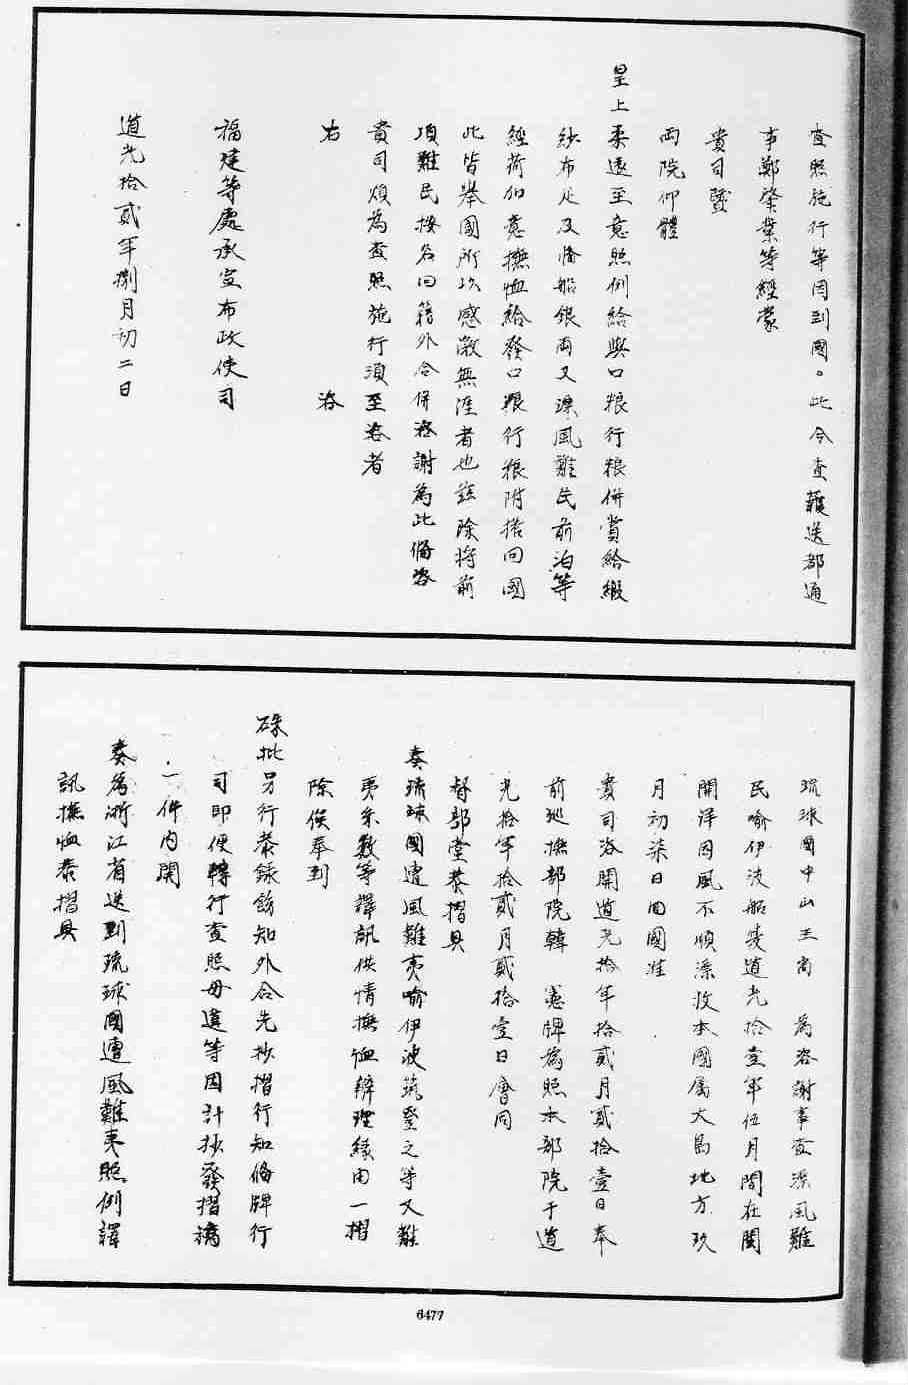 查照施行等因到國。此今查護送都通
事鄭肇業等經蒙
貴司暨
兩院仰體
皇上柔遠至意照例給與口粮行粮併賞給緞
紗布疋及修船銀両又漂風難民前泊等
經荷加意撫恤給發口粮行粮附搭回國
此皆舉國所以感激無涯者也茲除將前
項難民按名回籍外合併咨謝為此備咨
貴司煩為查照施行須至咨者
右 咨
福建等處承宣布政使司
道光拾貳年捌月初二日
琉球國中山王尚 為咨謝事查漂風難
民喻伊波船隻道光拾壹年伍月間在閩
開洋因風不順漂收本國属大島地方玖
月初柒日回國准
貴司咨開道光拾年拾貳月貳拾壹日奉
前廵撫部院韓 憲牌為照本部院于道
光拾年拾貳月貳拾壹日會同
督部堂恭摺具
奏琉球國遭風難夷喻伊波筑登之等又難
夷糸数等譯訊供情撫恤辦理緣由一摺
除俟奉到
硃批另行恭錄飭知外合先抄摺行知備牌行
司即便轉行查照毋違等因計抄發摺稿
一件內開
奏為浙江省送到琉球國遭風難夷照例譯
訊撫恤恭摺具
6477